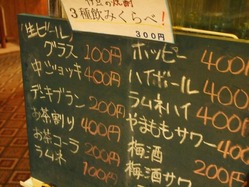 3種飲みくらべ!
300円
生ビール
グラス 200円
中ジョッキ 400円
デンキブラン 200円
お茶割り 400円
お茶コーラ 200円
ラムネ 100円
ホッピー 400
ハイボール 400
ラムネハイ 400
やまももサワー 400
梅酒
梅酒サワー